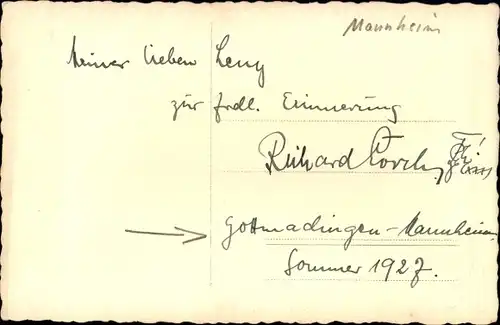 Mannheim
Meiner lieben Leny
zur frdl. Erinnerung
Richard
Gottmadingen - Mannheim
Sommer 1927.